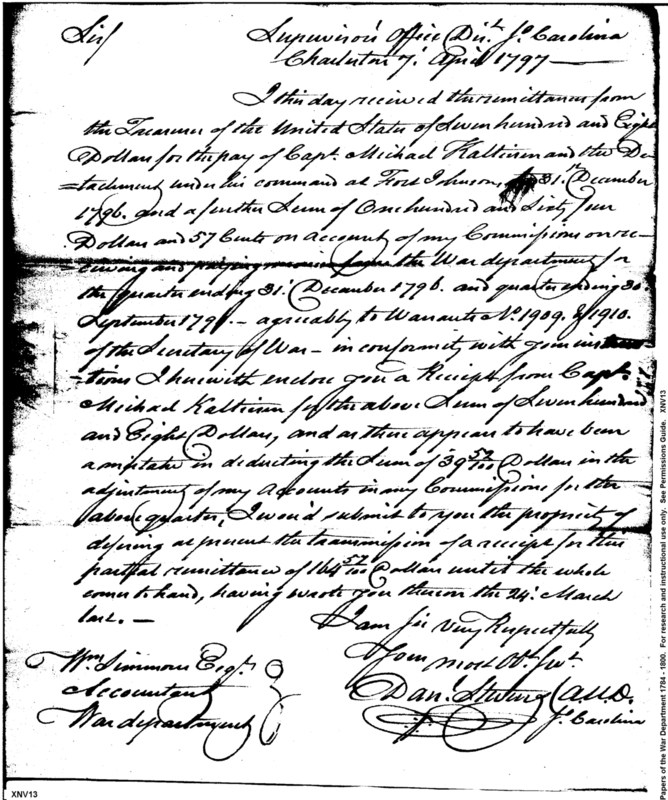 Sir/ Supervisor's Office Dist. So. Carolina
Charleston 7. April 1797
I this day received the remittances from
the Treasurer of the United States of Seven hundred and Eight
Dollars for the pay of Capt. Michael Kalteisen and the De-
=tachment under his command at Fort Johnson, 31st. December
1796. and a further Sum of One hundred and Sixty four
Dollars and 57 Cents on account of my Commissions on re-
ceiving and paying monies from the War department for
the quarter ending 31. December 1796. and quarter ending 30.
September 179 - agreeably to Warrants No. 1909. & 1910.
of the Secretary of War - in conformity with your instruc-
-tions I herewith enclose you a Receipt from Capt.
Michael Kalteisen for the above Sum of Seven hundred
and Eight Dollars, and as there appears to have been
a mistake in deducting the Sum of 39 52/100 Dollars in the
adjustment of my Accounts in my Commissions for the
above quarter, I would submit to you the propriety of
defering at present the transmission of a receipt for this
partial remittance of 164 57/100 Dollars until the whole
comes to hand, having wrote you thereon the 24. March
last. -
I am Sir Very Respectfully
Your most Obt. Servt.
Wm. Simmons Esqr.
Accountant
War department
Danl. Stevens
So. Carolina
XNV13
Papers of the War Department 1784 - 1800. For research and instructional use only. See Permissions Guide. XNV13